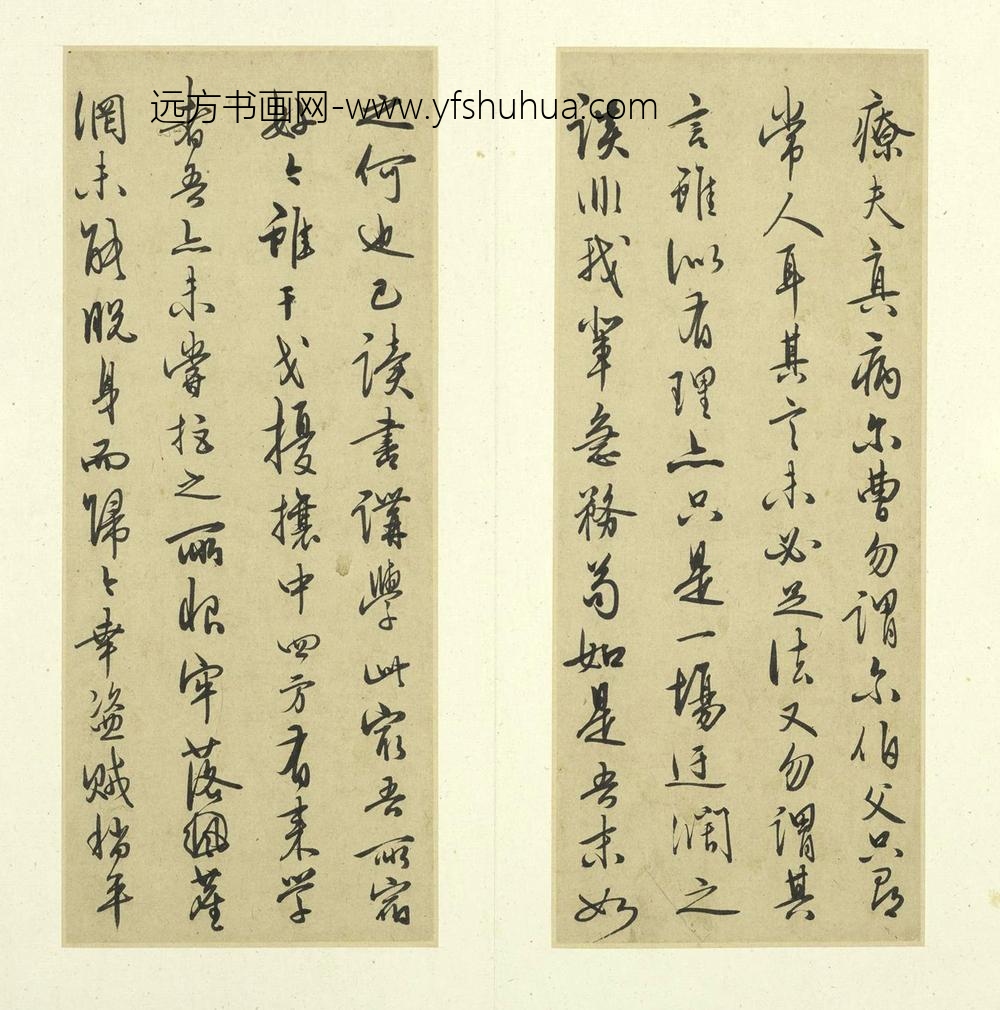 远方书画网-www.yfshuhua.com
療夫真病尔曹勿謂尔伯父只尋
常人耳其言未必足法又勿謂其
言雖似有理亦只是一場迂闊之
談非我輩急務苟如是吾末如
之何也已讀書講學此最吾所宿
好今雖干戈擾攘中四方有来学
者吾亦未嘗拒之所恨牢落塵
網未能脱身而歸今幸盗賊稍平